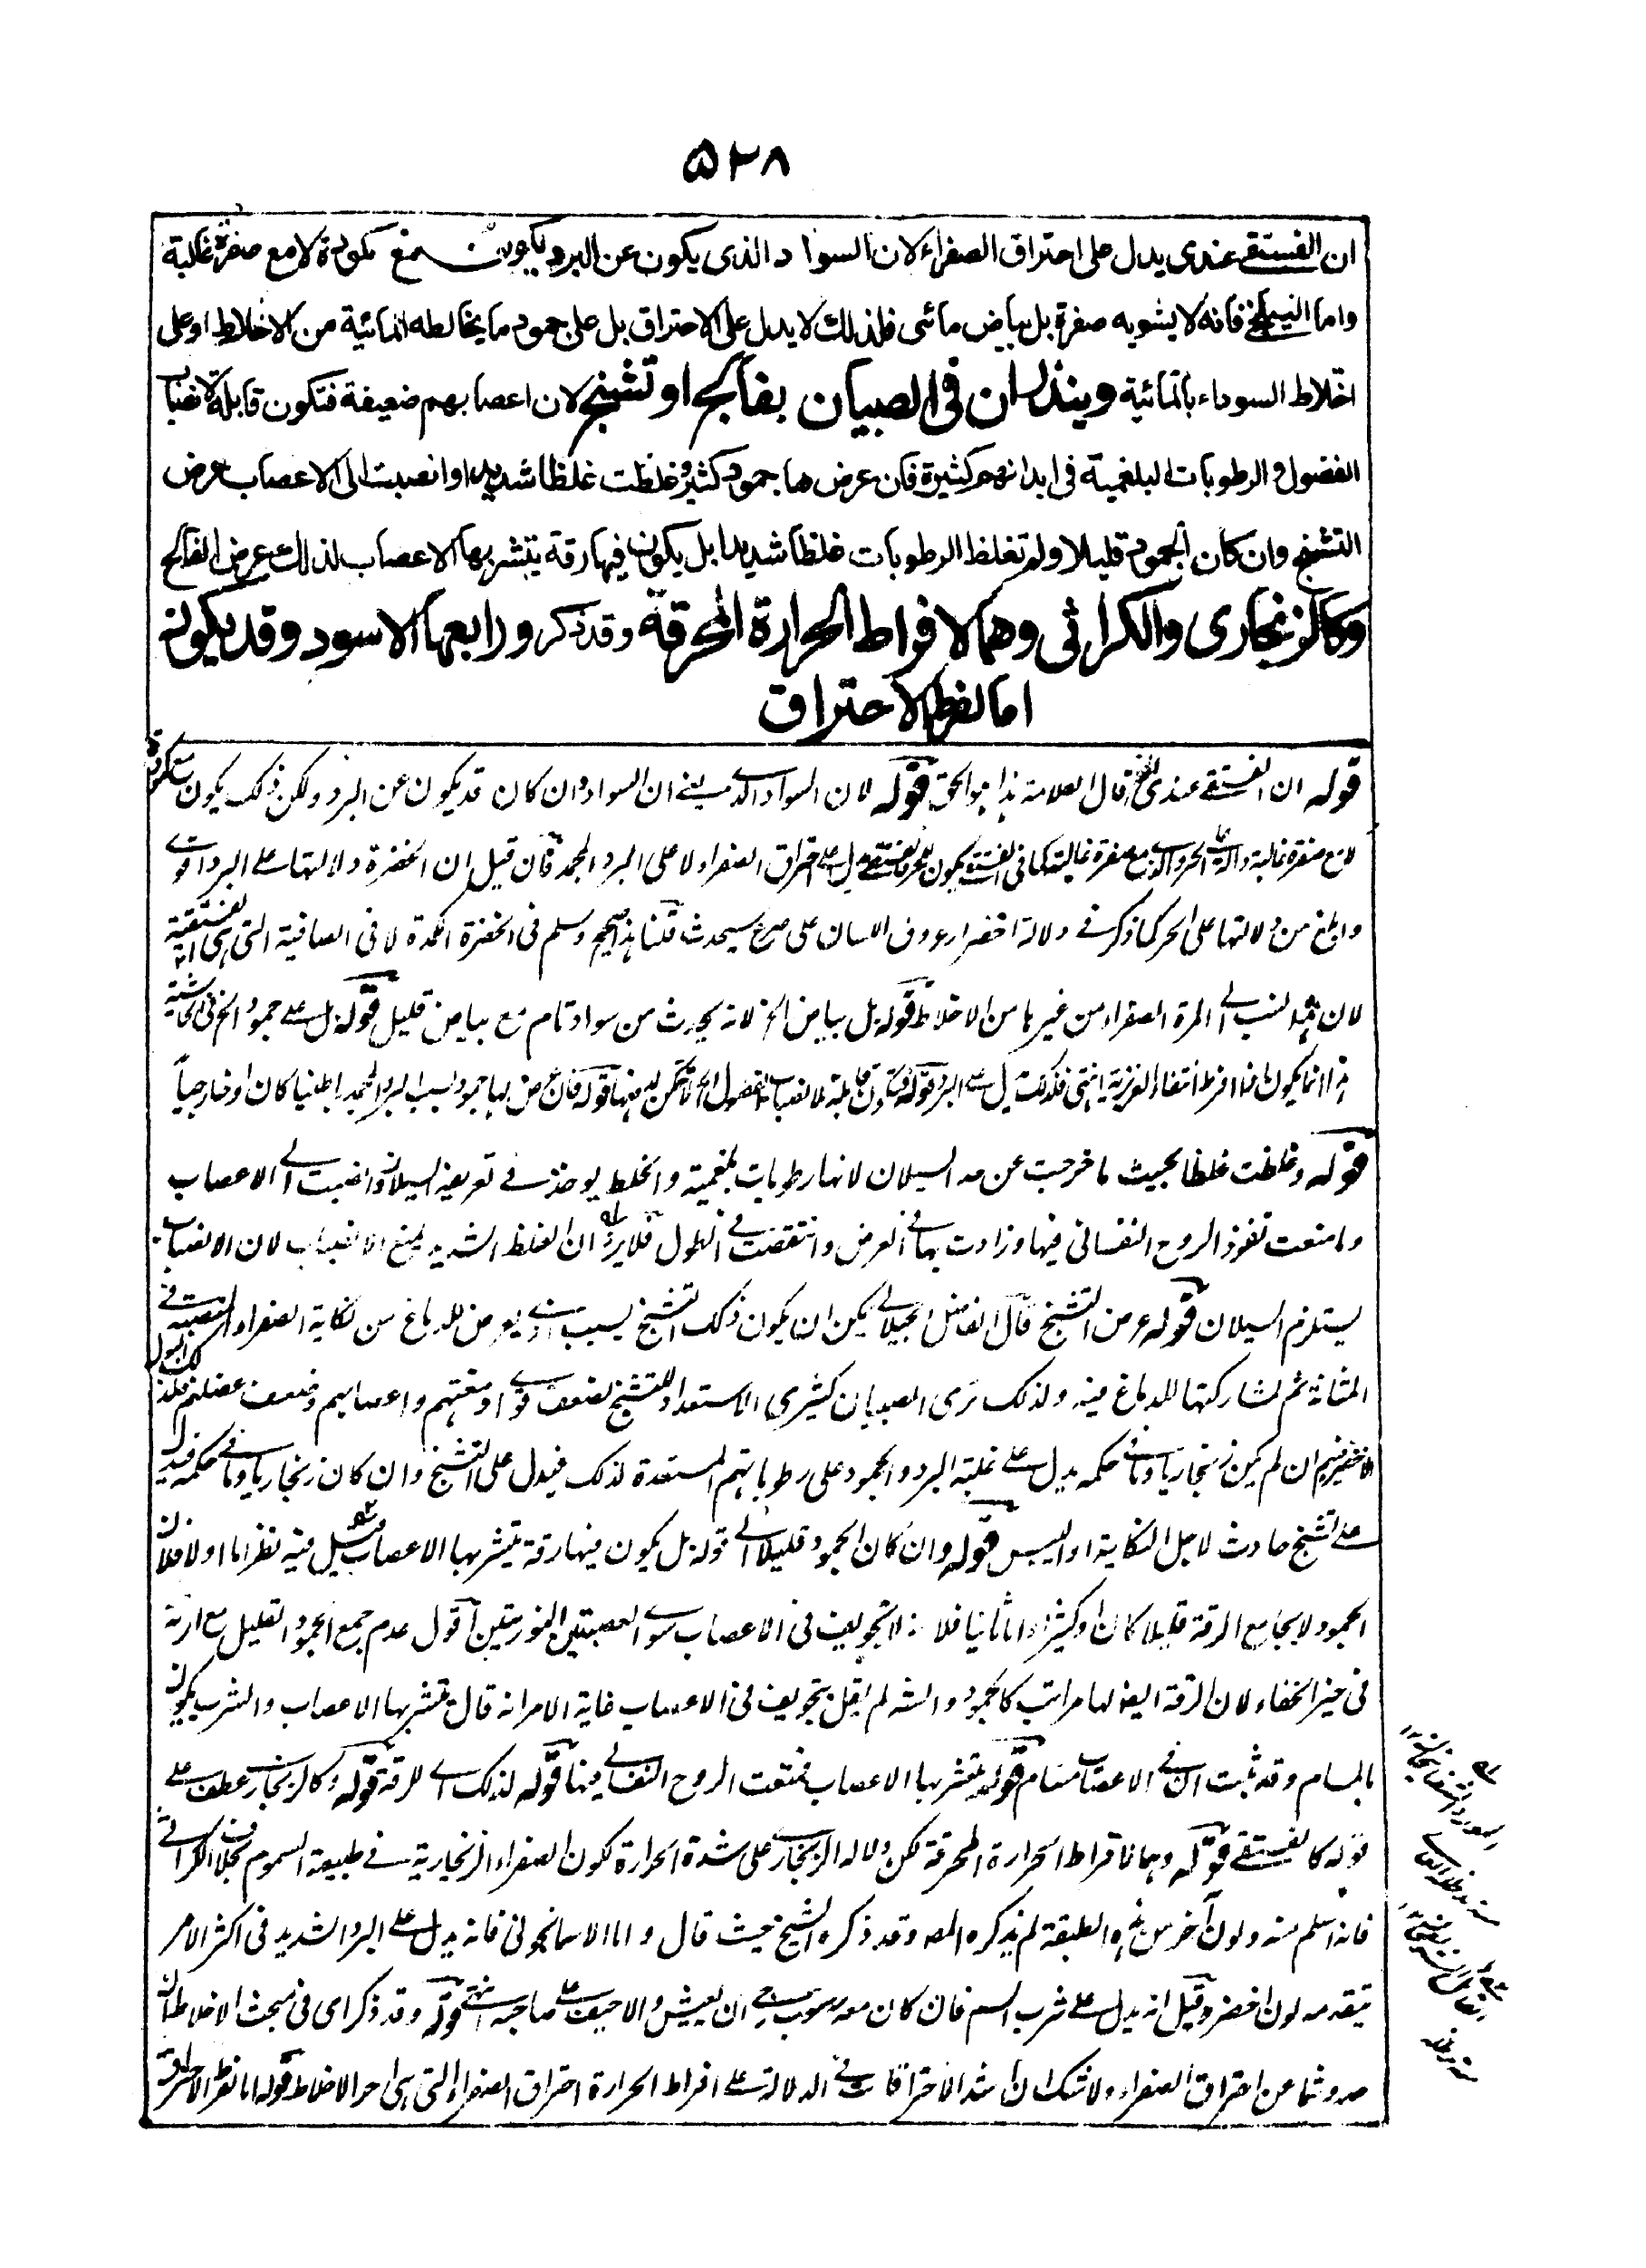 ۵۲۸
ان الفستقى عندى يدل على احتراق الصفراء لان السواد الذى يكون عن البرد يكون مع كمودة لا مع صفرة غالبة
واما النيلنجى فانه لا يشوبه صفرة بل بياض مائى فلذلك لا يدل على الاحتراق بل على جمود ما يخالطه المائية من الاخلاط او على
اختلاط السوداء بالمائية وينذران فى الصبيان بفالج او تشنج لان اعصابهم ضعيفة فتكون قابلة لانصباب
الفضول والرطوبات البلغمية فى ابدانهم كثيرة فان عرض لها جمود كثير وغلظت غلظا شديدا وانصبت الى الاعصاب عرض
التشنج وان كان الجمود قليلا ولم تغلظ الرطوبات غلظا شديدا بل يكون فيها رقة يتشربها الاعصاب لذلك عرض الفالج
وكالزنجارى والكراثى وهما لافراط الحرارة المحرقة وقد ذكر ورابعها الاسود وقد يكون
اما لفرط الاحتراق
قوله ان الفستقى عندى الخ قال العلامة هذا هو الحق قوله لان السواد الذى يعنى ان السواد وان كان قد يكون عن البرد ولكن ذلك يكون مع كمودة
لا مع صفرة غالبة والذى مع صفرة غالبة كما فى الفستقى يكون يدل على احتراق الصفراء لا على البرد المجمد فان قيل ان الخضرة ودلالتها على البرد اقوى
وابلغ من دلالتها على الحر كما ذكر فى دلالة اخضرار عروق اللسان على صرع سيحدث قلنا هذا صحيح ومسلم فى الخضرة الكمدة لا فى الصافية التى هى الفستقية
لان هذه انسب الى المرة الصفراء من غيرها من الاخلاط قوله بل بياض الخ لانه يحدث من سواد تام مع بياض قليل قوله بل على جمود الخ فى الحاشية
هذا انما يكون اذا افرط انتفاء الغريزية انتهى فلذلك يدل على البرد قوله فتكون قابلة لانصباب الفضول قوله فان عرض لها جمود بسبب البرد المجمد داخليا كان او خارجيا
قوله وغلظت غلظا بحيث ما خرجت عن حد السيلان لانها رطوبات بلغمية والخلط يوخذ فى تعريفه السيلان وانصبت الى الاعصاب
ومنعت نفوذ الروح النفسانى فيها وزادت بها فى العرض وانتقصت فى الطول فلا يرد ان الغلظ الشديد يمنع الانصباب لان الانصباب
يستلزم السيلان قوله عرض التشنج قال الفاضل الجيلانى يمكن ان يكون ذلك التشنج بسبب اذى يعرض للدماغ من نكاية الصفراء المنصبة فى
المثانة ثم لمشاركتها للدماغ فيه ولذلك ترى الصبيان كثيرى الاستعداد للتشنج لضعف قوى ادمغتهم واعصابهم وضعف عضلهم فلذلك البول
الاخضر فيهم ان لم يكن زنجاريا وما فى حكمه يدل على غلبة البرد والجمود على رطوباتهم المستعدة لذلك فيدل على التشنج وان كان زنجاريا وما فى حكمه فيدل
على تشنج حادث لاجل النكاية او اليبس قوله وان كان الجمود قليلا الى قوله بل يكون فيها رقة يتشربها الاعصاب قيل فيه نظر اما اولا فلان
الجمود لا يجامع الرقة قليلا كان او كثيرا واما ثانيا فلانه لا تجويف فى الاعصاب سوى العصبتين النوريتين اقول عدم جمع الجمود القليل مع الرقة
فى حيز الخفاء لان الرقة ايضا لها مراتب كالجمود والشه لم يقل بتجويف فى الاعصاب غاية الامر انه قال يتشربها الاعصاب والتشرب يكون
بالمسام وقد ثبت ان فى الاعصاب مسام قوله يتشربها الاعصاب فمنعت الروح النفسانى فيها قوله لذلك اى للرقة قوله وكالزنجارى عطف على
قوله كالفستقى قوله وهما لافراط الحرارة المحرقة لكن دلالة الزنجارى على شدة الحرارة لكون الصفراء الزنجارية فى طبيعة السموم بخلاف الكراثى
فانه اسلم منه ولون آخر من هذه الطبقة لم يذكره المصـ وقد ذكره الشيخ حيث قال واما الاسمانجونى فانه يدل على البرد الشديد فى اكثر الامر
يتقدمه لون اخضر وقيل انه يدل على شرب السم فان كان معه رسوب رجى ان يعيش والا خيف على صاحبه انتهى قوله وقد ذكر اى فى مبحث الاخلاط ان
حدوثها عن احتراق الصفراء ولا شك ان اشد الاحتراقات فى الدلالة على افراط الحرارة احتراق الصفراء التى هى احر الاخلاط قوله اما لفرط الاحتراق